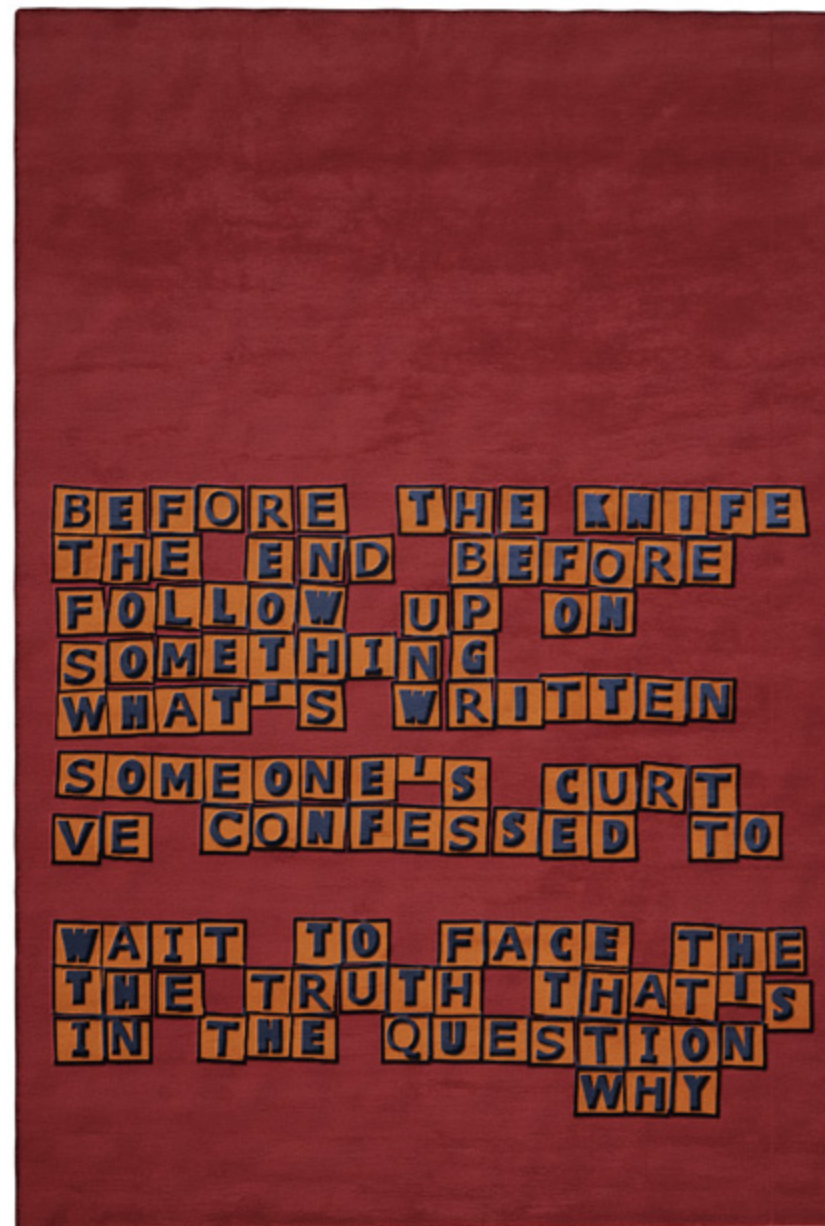 BEFORE THE KNIFE
THE END BEFORE
FOLLOW UP ON
SOMETHING
WHAT'S WRITTEN
SOMEONE'S CURT
VE CONFESSED TO
WAIT TO FACE THE
THE TRUTH THAT'S
IN THE QUESTION
WHY